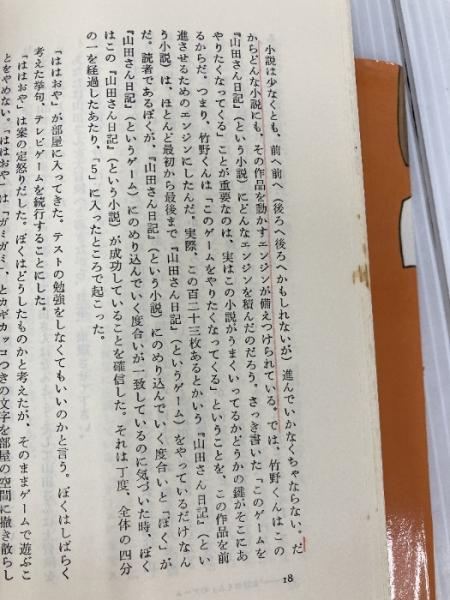 小説は少なくとも、前へ前へ（後ろへ後ろへかもしれないが）進んでいかなくちゃならない。だ
からどんな小説にも、その作品を動かすエンジンが備えつけられている。では、竹野くんはこの
『山田さん日記』（という小説）にどんなエンジンを積んだのだろう。さっき書いた「このゲームを
やりたくなってくる」ことが重要なのは、実はこの小説がうまくいってるかどうかの鍵がそこにあ
るからだ。つまり、竹野くんは「このゲームをやりたくなってくる」ということを、この作品を前
進させるためのエンジンにしたんだ。実際、この百二十三枚あるとかいう『山田さん日記』（とい
う小説）は、ほとんど最初から最後まで『山田さん日記』（というゲーム）をやっているだけなん
だ。読者であるぼくが、『山田さん日記』（という小説）にのめり込んでいく度合いと「ぼく」が、
『山田さん日記』（というゲーム）にのめり込んでいく度合いが一致しているのに気づいた時、ぼく
はこの『山田さん日記』（という小説）が成功していることを確信した。それは丁度、全体の四分
の一を経過したあたり、「5」に入ったところで起こった。
「ははおや」が部屋に入ってきた。テストの勉強をしなくてもいいのかと言う。ぼくはしばらく
考えた挙句、テレビゲームを続行することにした。
「ははおや」は案の定怒りだした。ぼくはどうしたものかと考えたが、そのままゲームで遊ぶこ
とをやめない。「ははおや」は「ガミガミ」とカギカッコつきの文字を部屋の空間に撒き散らし
18